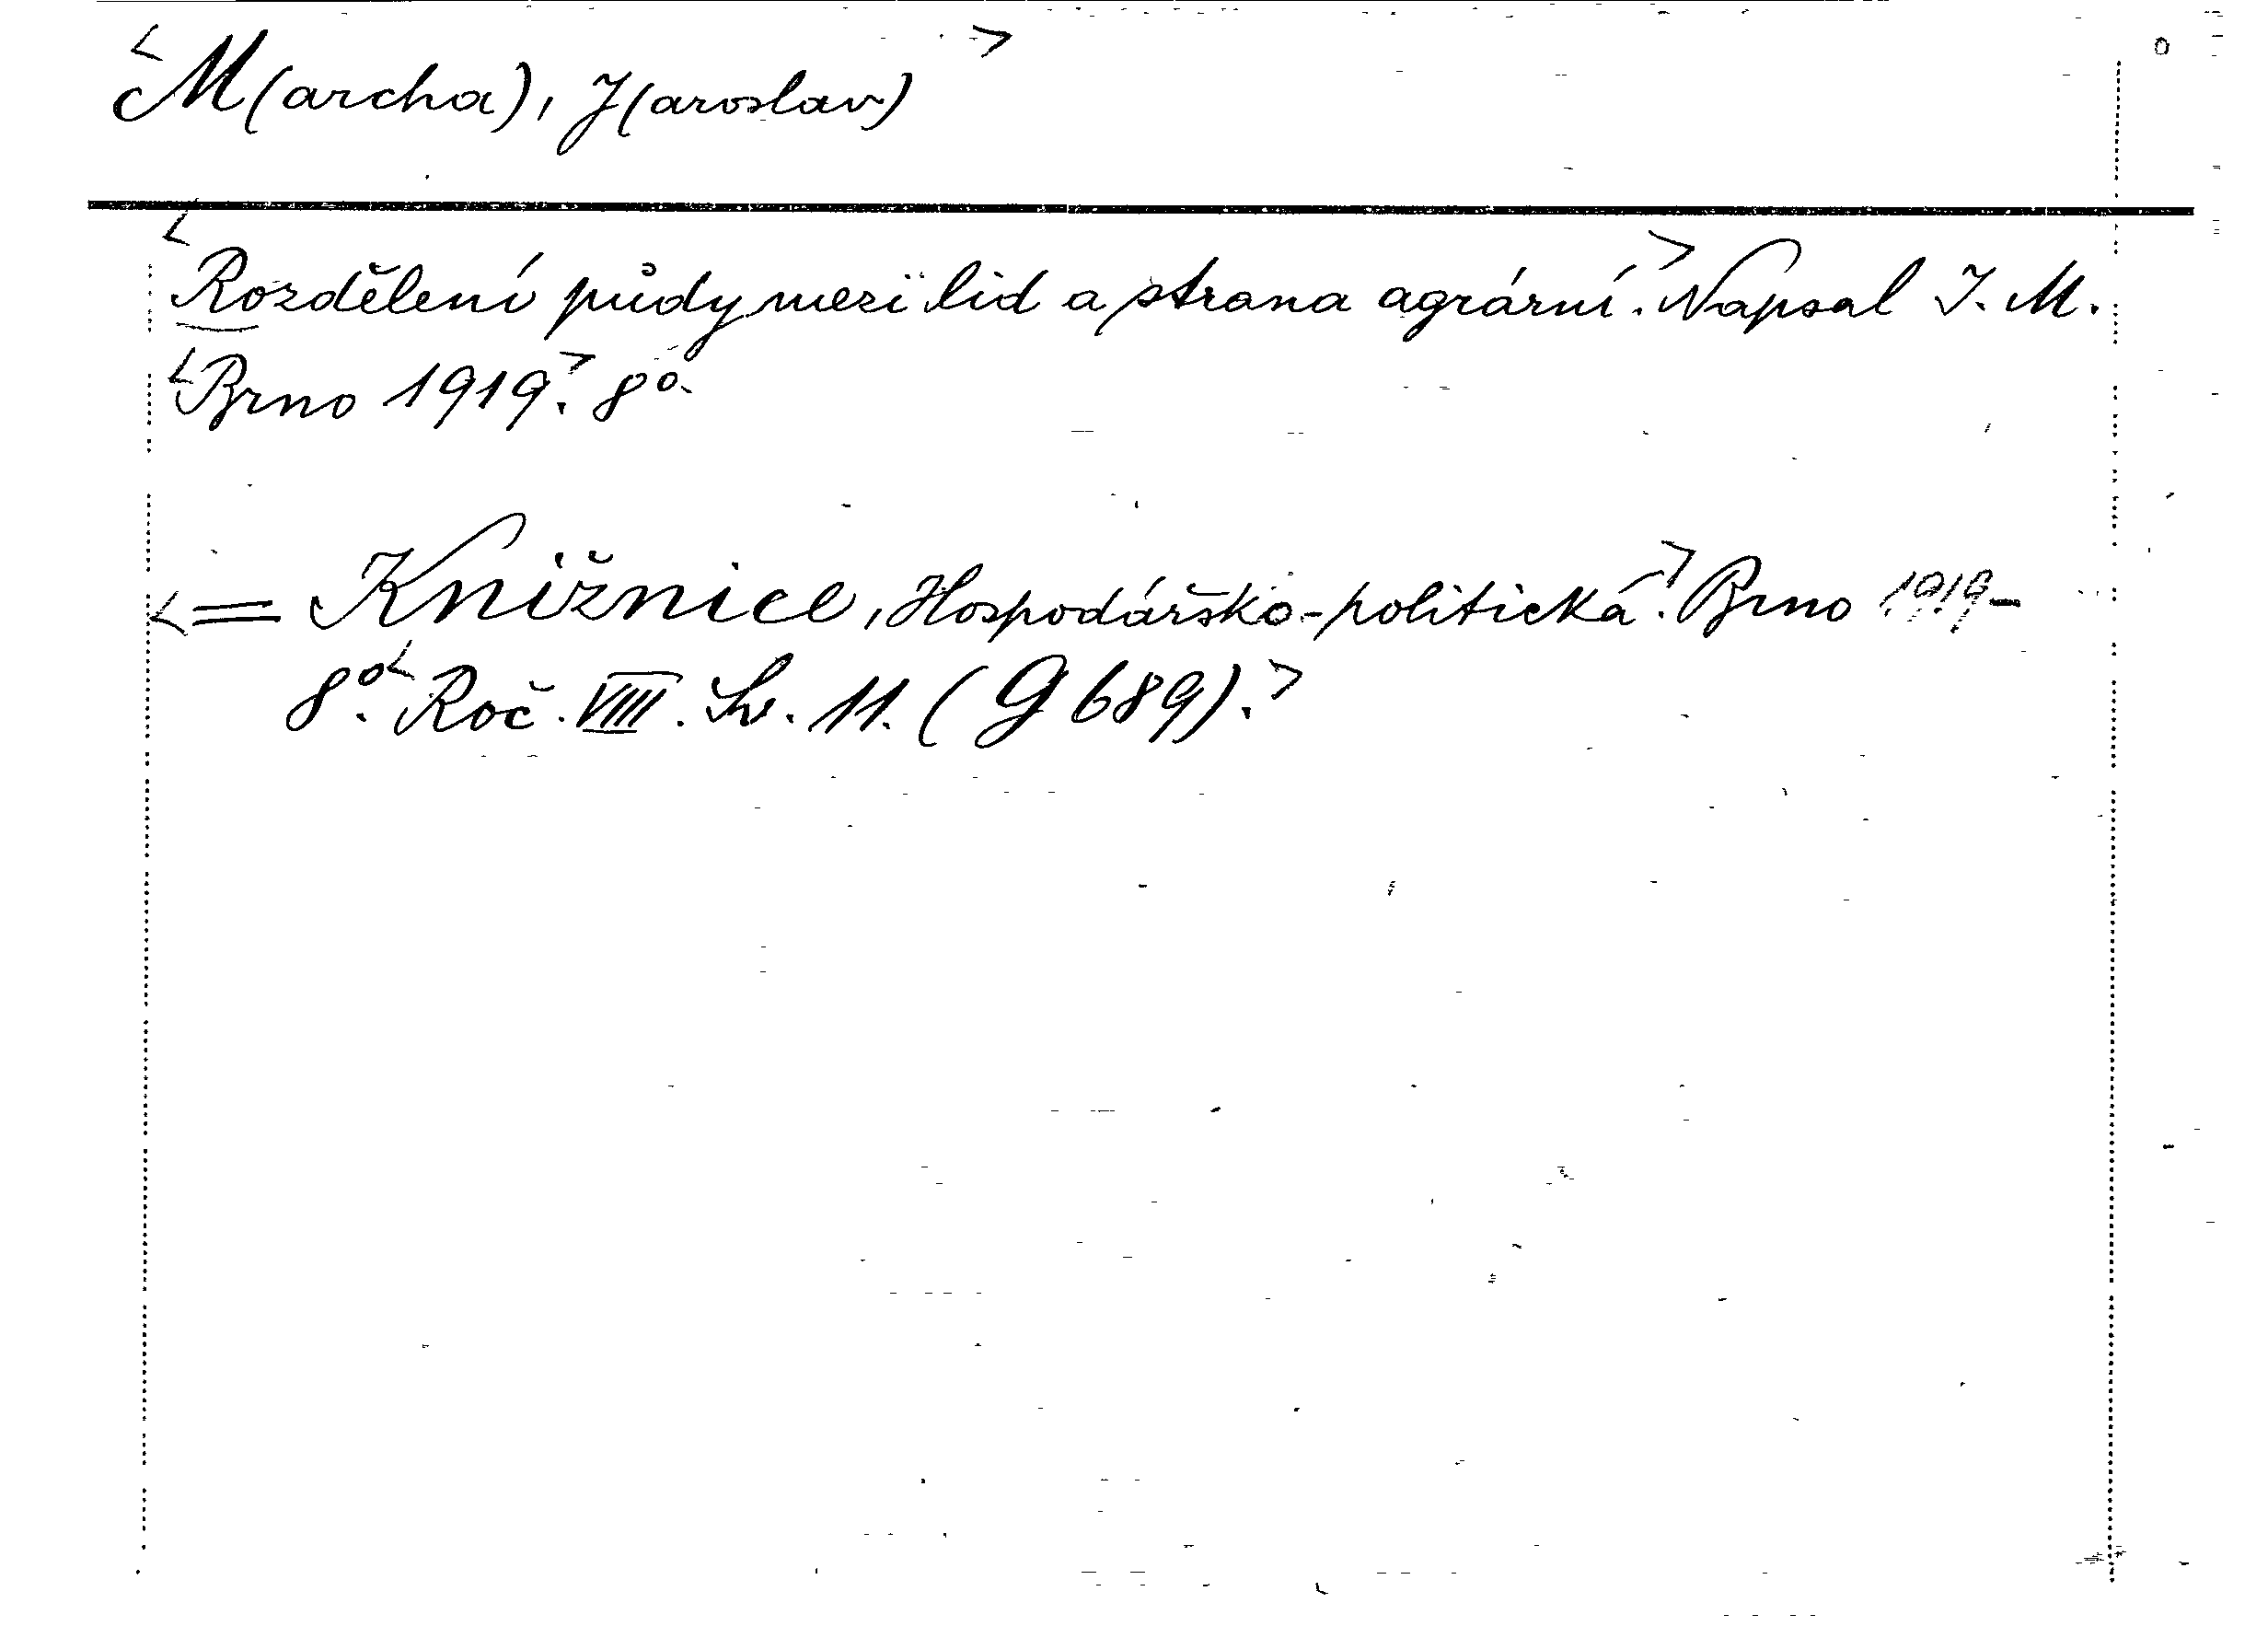 <M(archa), J(aroslav)>
<Rozdělení půdy mezi lid a strana agrární.> Napsal J. M.
<Brno 1919.> 8°.
<= Knižnice, Hospodářsko-politická.> Brno 1919-
8°. <Roč. VIIII. Sv. 11. (G 689).>